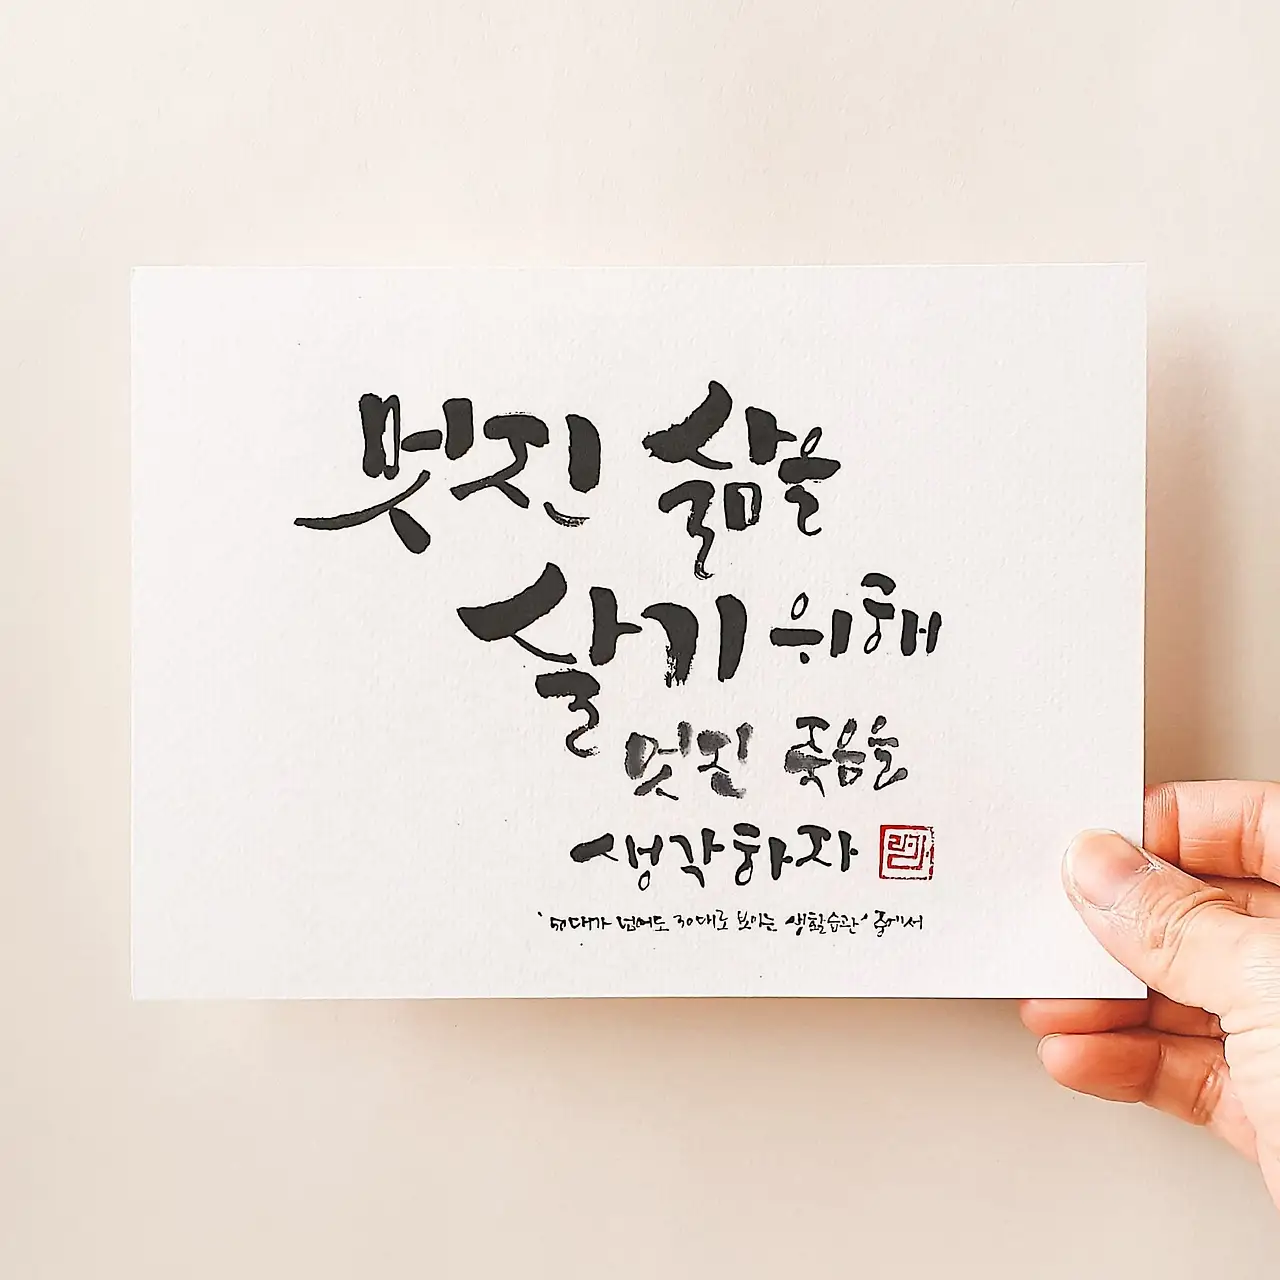 멋진 삶을
살기 위해
멋진 죽음을
생각하자
'50대가 넘어도 30대로 보이는 생활습관' 중에서